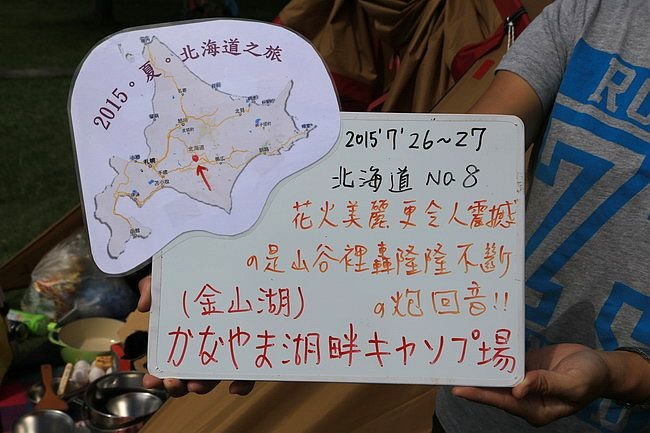 2015。夏。北海道之旅
北海道
札幌
2015'7'26~27
北海道 No 8
花火美麗更令人震撼
の是山谷裡轟隆隆不斷
(金山湖) の炮回音!!
かなやま湖畔キャンプ場
RU